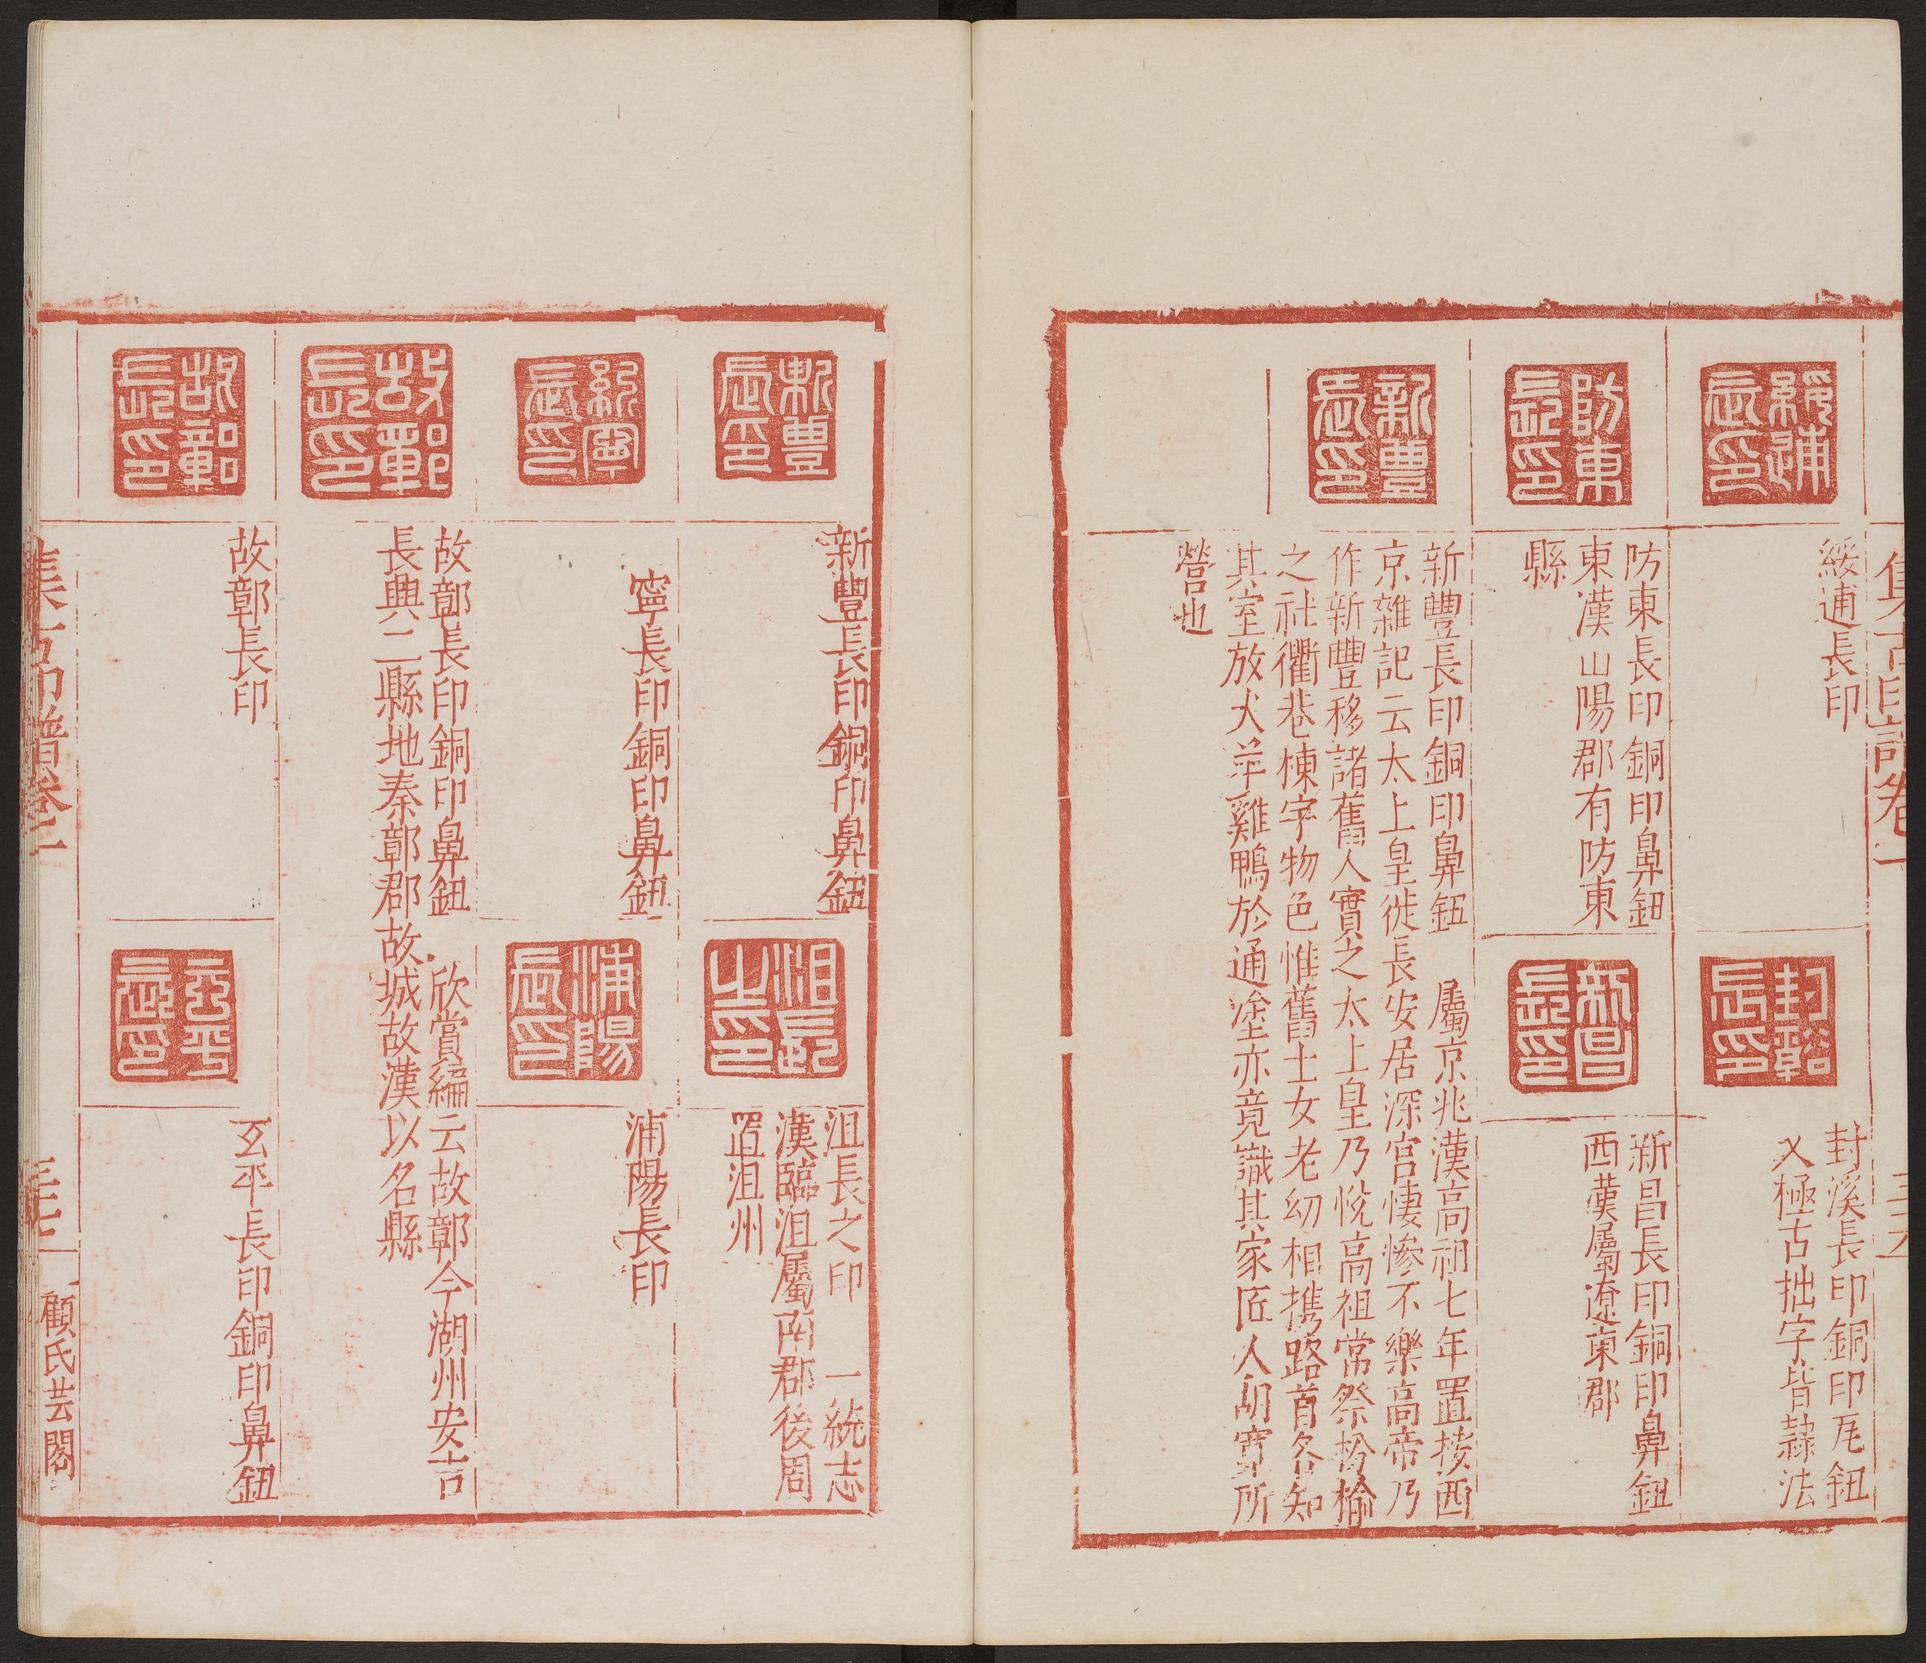 集古印譜卷二
綏逋長印
綏逋長印
封溪長印
封溪長印銅印尾鈕
文極古拙字皆隷法
防東長印
防東長印銅印鼻鈕
東漢山陽郡有防東
縣
新昌長印
新昌長印銅印鼻鈕
西漢屬遼東郡
新豐長印
新豐長印銅印鼻鈕 屬京兆漢高祖七年置按西
京雜記云太上皇徙長安居深宫悽慘不樂高帝乃
作新豐移諸舊人實之太上皇乃悅高祖常祭枌榆
之社衢巷棟宇物色惟舊士女老幼相携路首各知
其室放犬羊雞鴨於通塗亦竟識其家匠人胡寬所
營也
新豐長印
新豐長印銅印鼻鈕
沮長之印
沮長之印 一統志
漢臨沮屬南郡後周
置沮州
寧長印銅印鼻鈕
浦陽長印
浦陽長印
故鄣長印
故鄣長印銅印鼻鈕 欣賞編云故鄣今湖州安吉
長興二縣地秦鄣郡故城故漢以名縣
故鄣長印
故鄣長印
玄平長印
玄平長印銅印鼻鈕
集古印譜卷二
三十七
顧氏芸閣